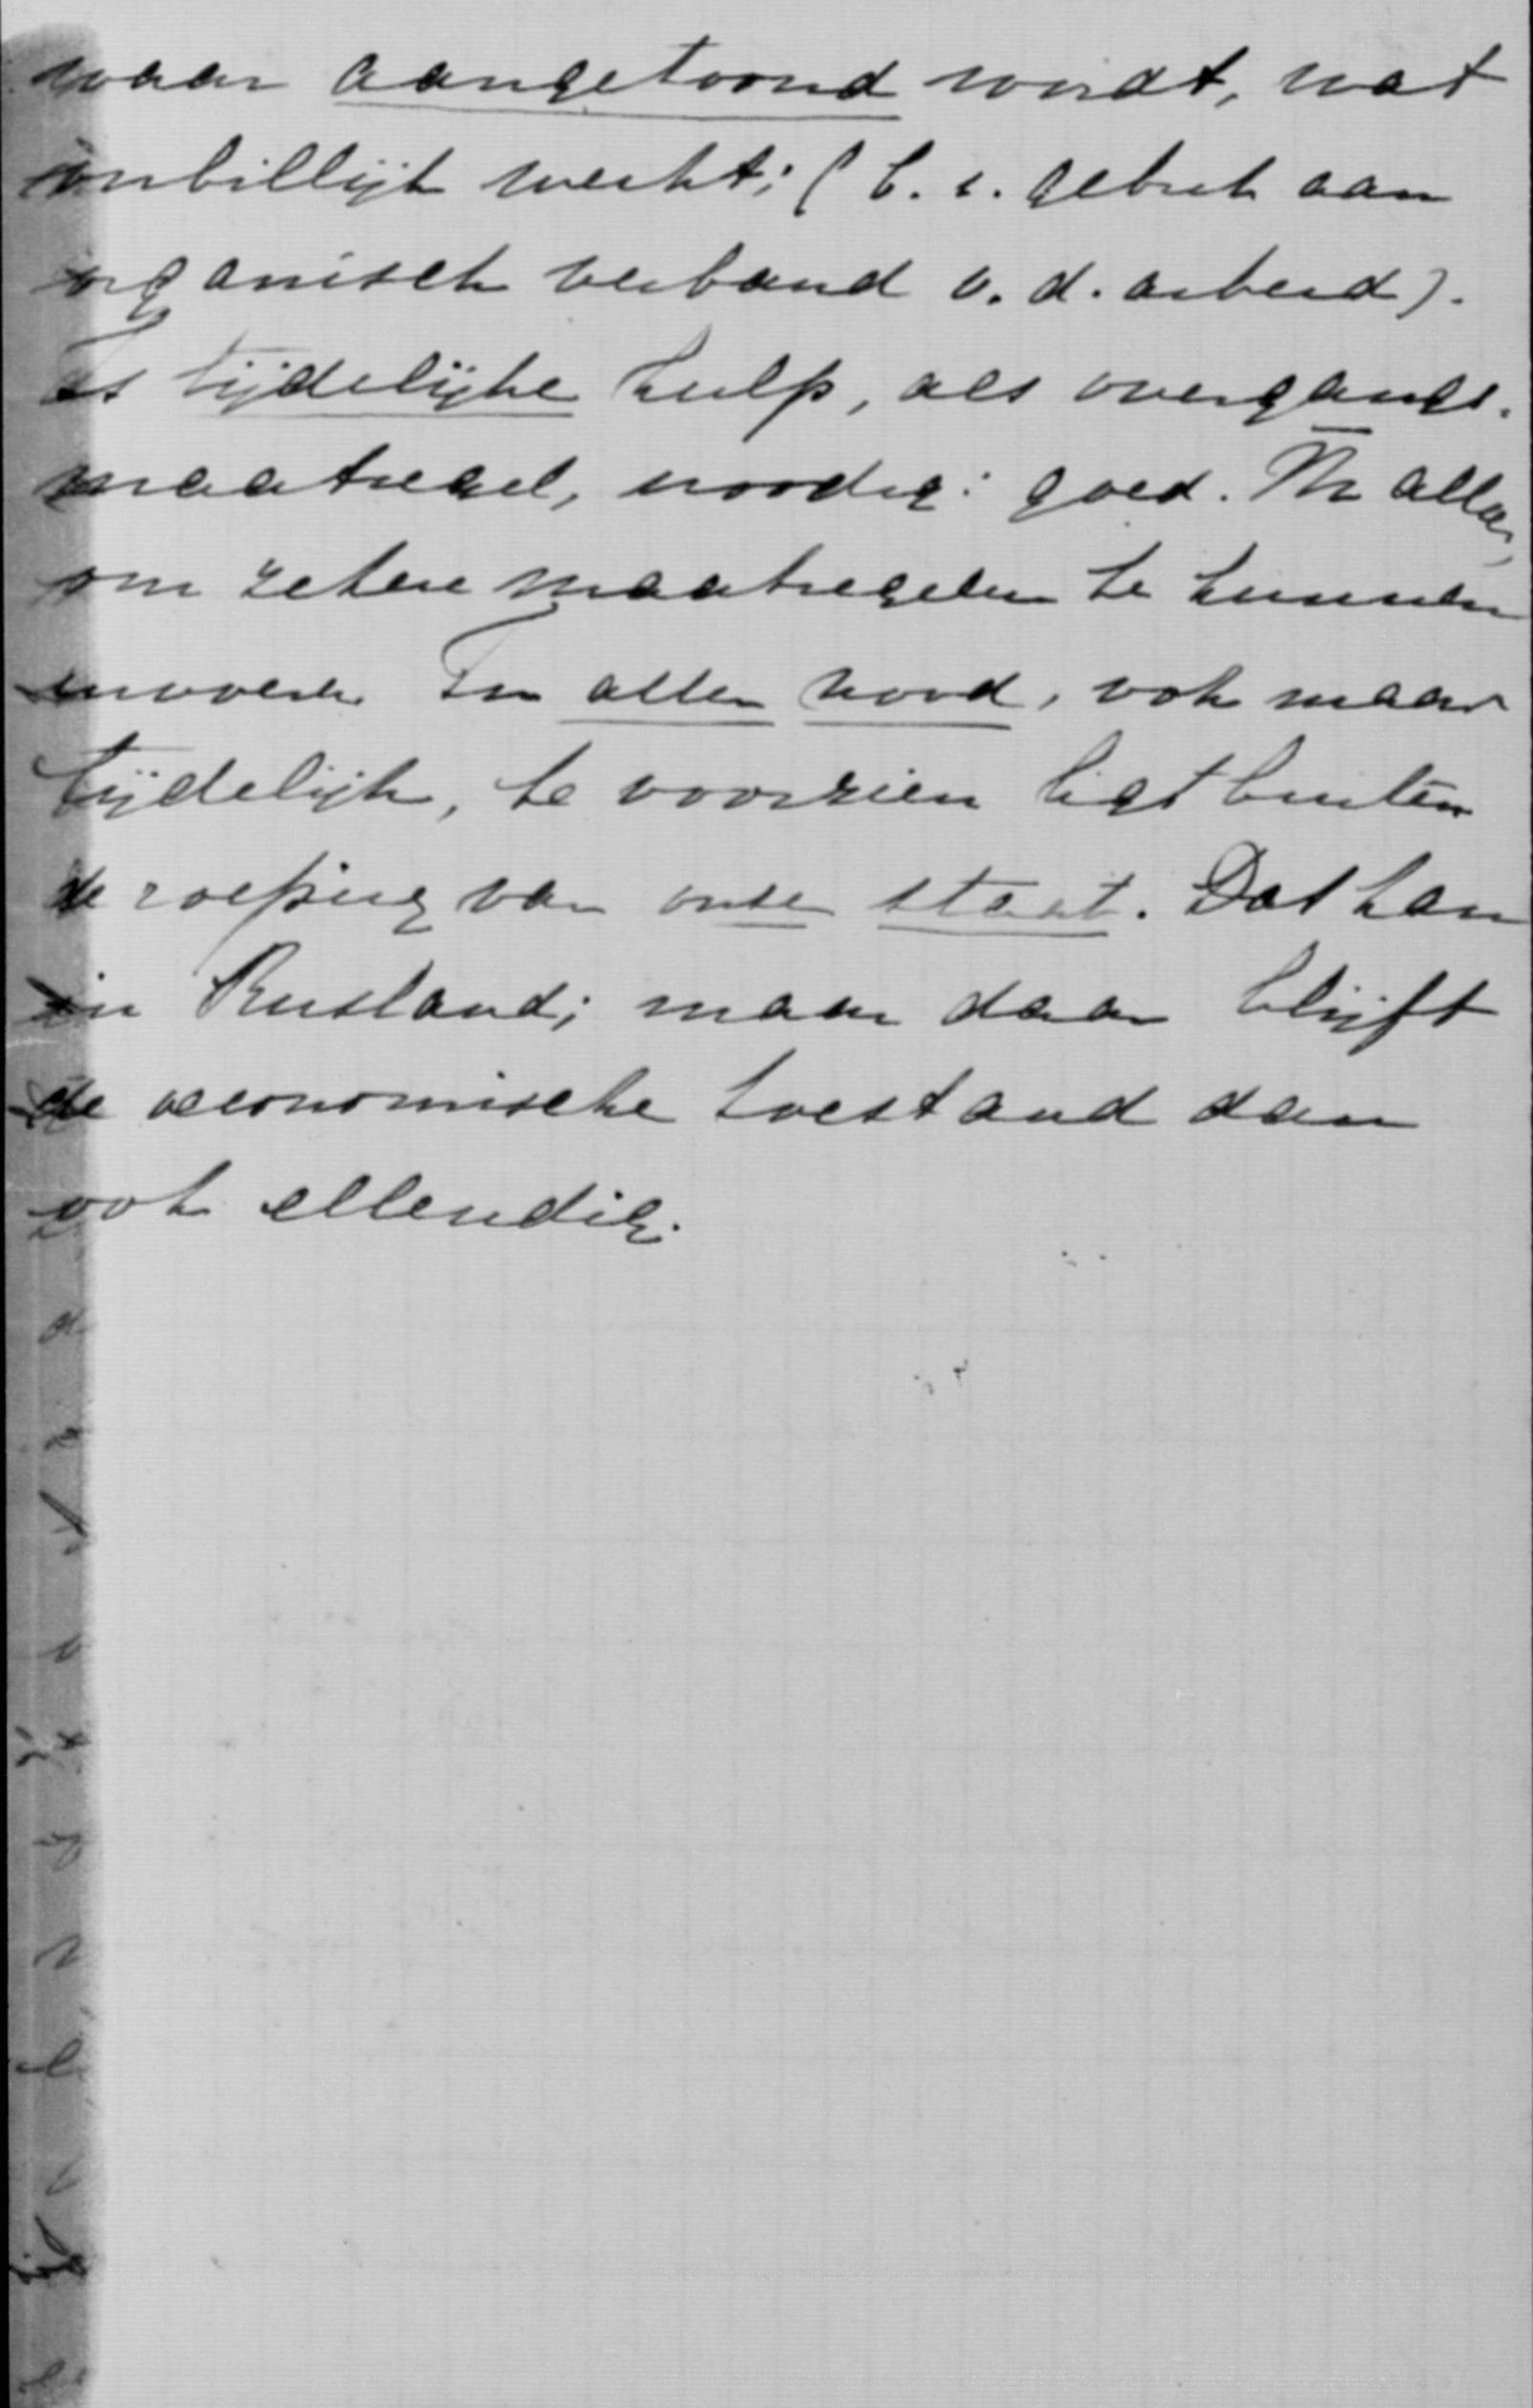 waar aangetoond wordt, wat
onbillijk werkt; (b.v. gebrek aan
organisch verband v. d. arbeid).
Is tijdelijke hulp, als overgangs-
maatregel, noodig: goed. M allen,
om zekere maatregelen te kunnen
invoeren. In allen nood, ook maar
tijdelijk, te voorzien ligt buiten
de roeping van onze staat. Dat kan
in Rusland; maar daar blijft
de oeconomische toestand dan
ook ellendig.